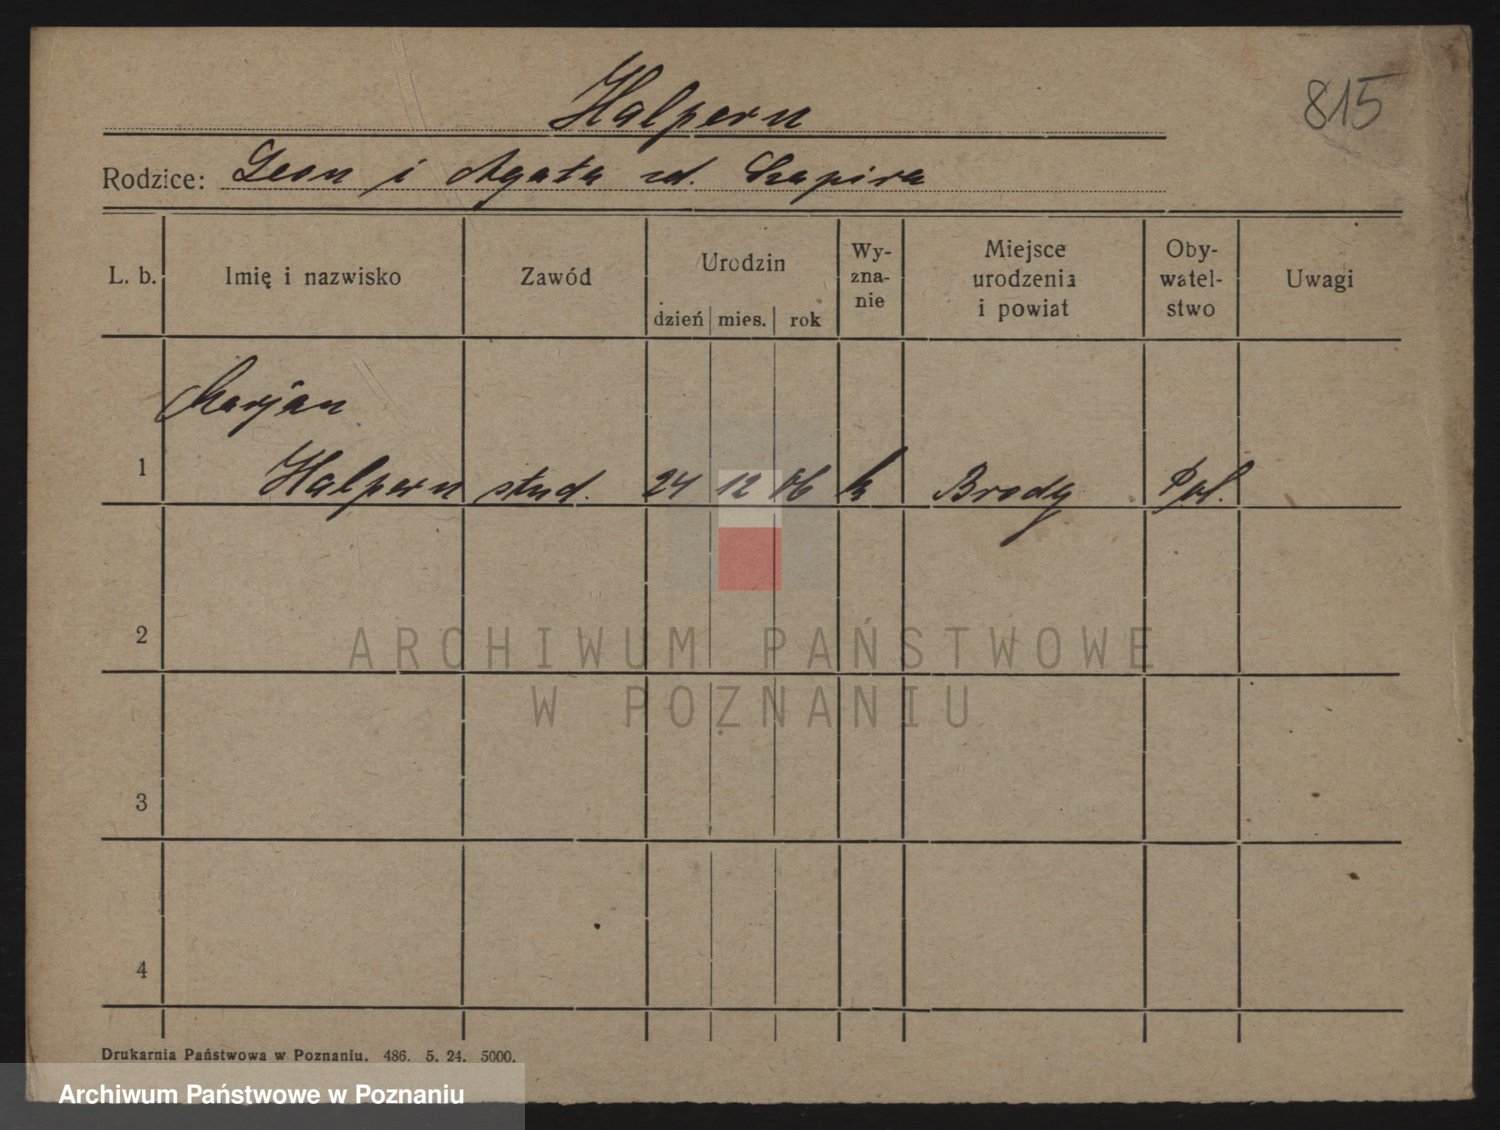 Halpern
815
Rodzice: Leon i Agata zd. Szapira
L. b. Imię i nazwisko Zawód Urodzin dzień mies. rok Wy-zna-nie Miejsce urodzenia i powiat Oby-watel-stwo Uwagi
Marjan
1 Halpern stud. 24 12 06 k Brody Pol.
2
3
4
ARCHIWUM PAŃSTWOWE
W POZNANIU
Drukarnia Państwowa w Poznaniu. 486. 5. 24. 5000.
Archiwum Państwowe w Poznaniu